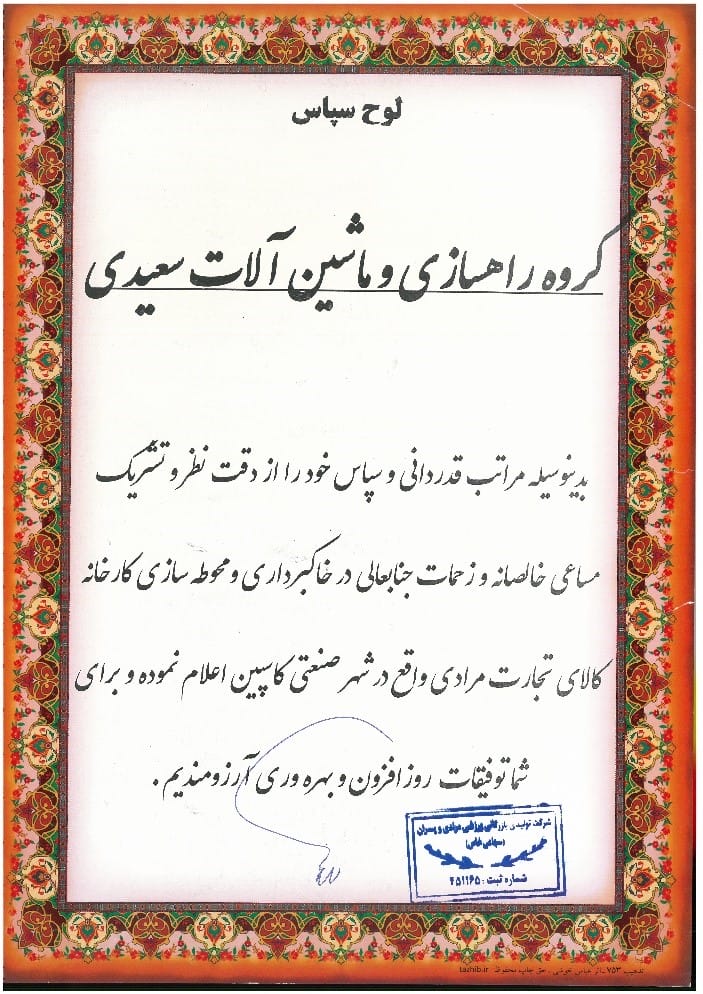 لوح سپاس
گروه راهسازی و ماشین آلات سعیدی
بدینوسیله مراتب قدردانی و سپاس خود را از دقت نظر و تشریک
مساعی خالصانه و زحمات جنابعالی در خاکبرداری و محوطه سازی کارخانه
کالای تجارت مرادی واقع در شهر صنعتی کاسپین اعلام نموده و برای
شما توفیقات روز افزون و بهره وری آرزومندیم .
شرکت تولیدی بازرگانی ورزشی مرادی و پسران
(سهامی خاص)
شماره ثبت : ۴۵۱۱۶۵
تذهیب ۷۵۳ ـ اثر عباس خوشی . حق چاپ محفوظ tazhib.ir